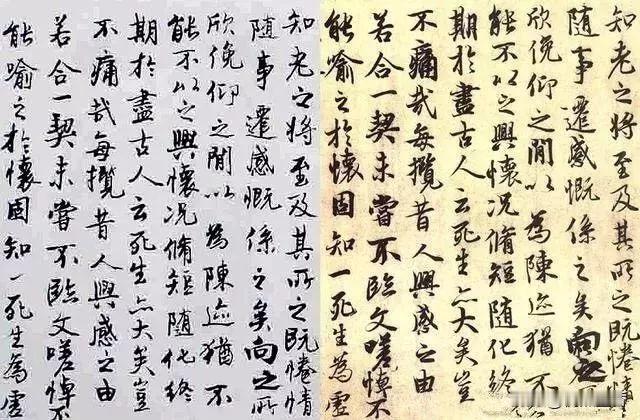 知老之將至及其所之既惓情
隨事遷感慨係之矣向之所
欣俛仰之閒以為陳迹猶不
能不以之興懷况脩短隨化終
期於盡古人云死生亦大矣豈
不痛哉每攬昔人興感之由
若合一契未嘗不臨文嗟悼不
能喻之於懷固知一死生為虛
知老之將至及其所之既惓情
隨事遷感慨係之矣向之
欣俛仰之閒以為陳迹猶不
能不以之興懷况脩短隨化終
期於盡古人云死生亦大矣豈
不痛哉每攬昔人興感之由
若合一契未嘗不臨文嗟悼不
能喻之於懷固知一死生為虛